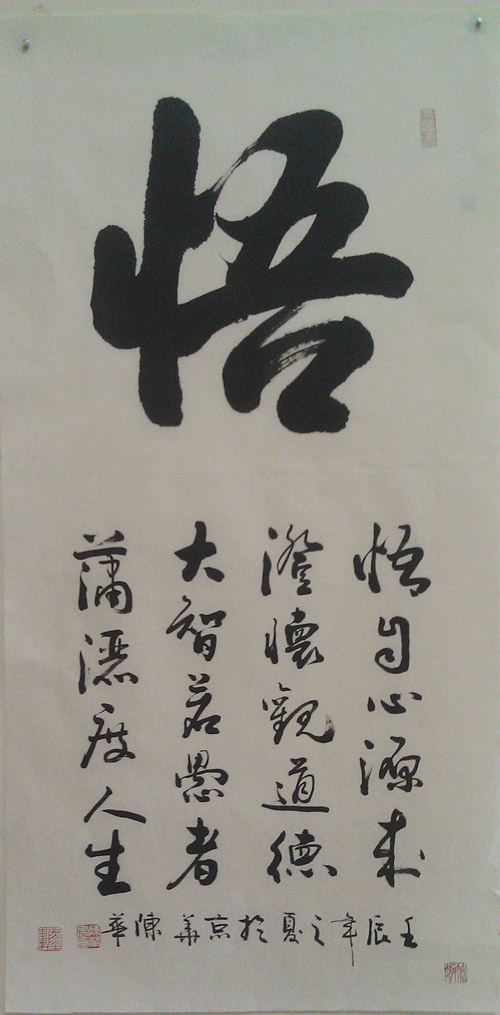 悟
悟自心源来
澄懷觀道德
大智若愚者
蒲洒度人生
壬辰年之夏於京華陳華